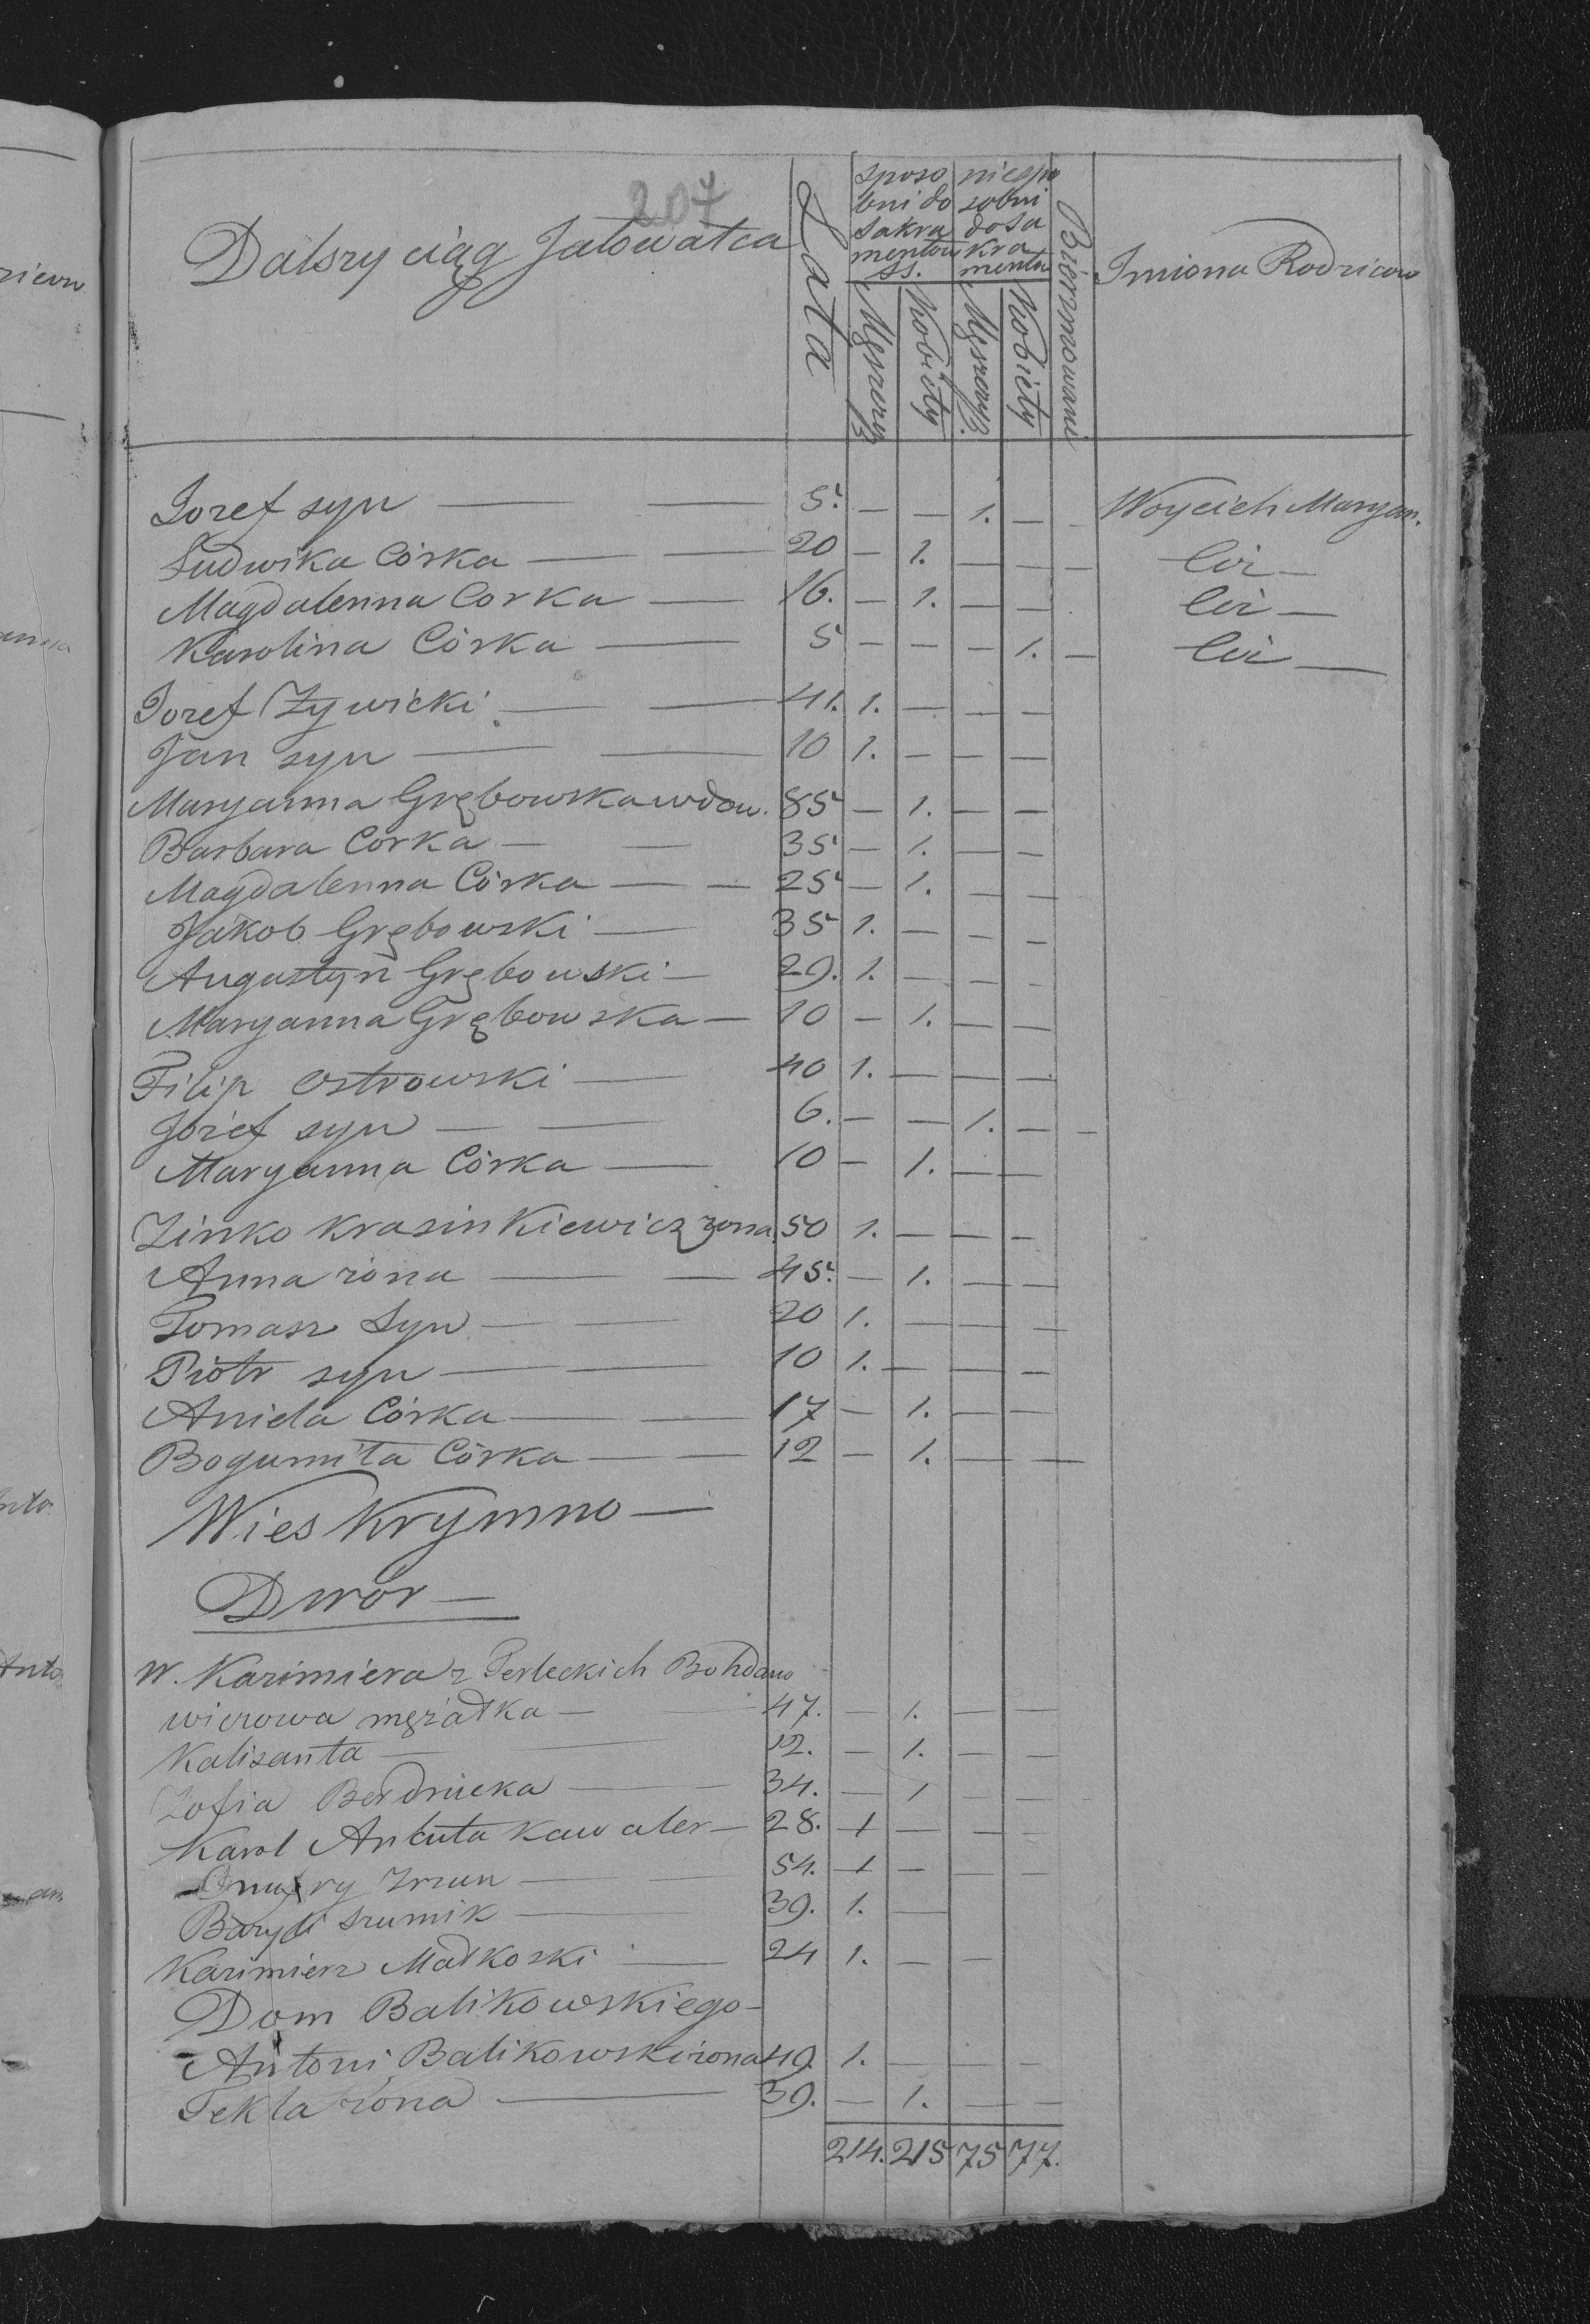 207
Dalszy ciąg Jałowatca
Lata
sposobni do sakramentow ss.
niesposobni do sakramentu
Męszczyz
Kobiety
Męszczyz.
Kobiety
Bierzmowani
Imiona Rodzicow
Jozef syn — — 5. — — 1. — — Woyciech Maryan.
Ludwika Córka — — 20 — 1. — — — Ciż —
Magdalenna Corka — 16. — 1. — — Ciż —
Karolina Córka — 5 — — — 1. — Ciż —
Jozef Zywicki — — 41. 1. — — —
Jan syn — — 10 1. — — —
Maryanna Grębowska wdow. 85 — 1. — —
Barbara Corka — — 35 — 1. — —
Magdalenna Córka — — 25 — 1. — —
Jakob Grębowski — 35 1. — — —
Augustyn Grębowski — 29. 1. — — —
Maryanna Grębowska — 10 — 1. — —
Filip Ostrowski — 40 1. — — —
Józef syn — — 6. — — 1. — —
Maryanna Córka — 10 — 1. — —
Zinko Krasinkiewicz zona 50 1. — — —
Anna zona — — 45. — 1. — —
Tomasz Syn — — 20 1. — — —
Piotr syn — — 10 1. — — —
Aniela Córka — — 17 — 1. — —
Bogumiła Córka — — 12 — 1. — —
Wies Krymno —
Dwór —
W. Kazimiera z Perleckich Bohdano
wiczowa mężatka — — 47. — 1. — —
Kalisanta — — 12. — 1. — —
Zofia Berdnicka — — 34. — 1 — —
Karol Ankuta Kawaler — 28. 1 — — —
Onufry — — 54. 1 — — —
Bazyli Szumik — 39. 1. —
Kazimierz Matkoski — 24 1. — —
Dom Balikowskiego —
Antoni Balikowski zona 49. 1. — — —
Tekla zona — 39. — 1. — —
214. 215 75 77.